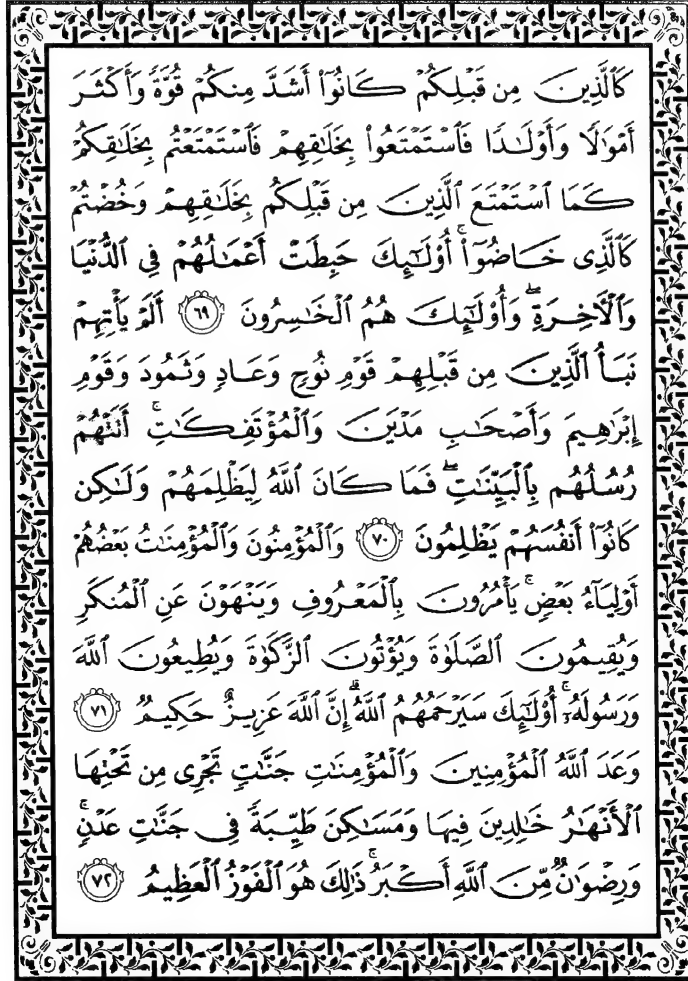 كَٱلَّذِينَ مِن قَبْلِكُمْ كَانُوٓا۟ أَشَدَّ مِنكُمْ قُوَّةً وَأَكْثَرَ
أَمْوَٰلًا وَأَوْلَـٰدًا فَٱسْتَمْتَعُوا۟ بِخَلَـٰقِهِمْ فَٱسْتَمْتَعْتُم بِخَلَـٰقِكُمْ
كَمَا ٱسْتَمْتَعَ ٱلَّذِينَ مِن قَبْلِكُم بِخَلَـٰقِهِمْ وَخُضْتُمْ
كَٱلَّذِى خَاضُوٓا۟ ۚ أُو۟لَـٰٓئِكَ حَبِطَتْ أَعْمَـٰلُهُمْ فِى ٱلدُّنْيَا
وَٱلْـَٔاخِرَةِ ۖ وَأُو۟لَـٰٓئِكَ هُمُ ٱلْخَـٰسِرُونَ ٦٩ أَلَمْ يَأْتِهِمْ
نَبَأُ ٱلَّذِينَ مِن قَبْلِهِمْ قَوْمِ نُوحٍ وَعَادٍ وَثَمُودَ وَقَوْمِ
إِبْرَٰهِيمَ وَأَصْحَـٰبِ مَدْيَنَ وَٱلْمُؤْتَفِكَـٰتِ ۚ أَتَتْهُمْ
رُسُلُهُم بِٱلْبَيِّنَـٰتِ ۖ فَمَا كَانَ ٱللَّهُ لِيَظْلِمَهُمْ وَلَـٰكِن
كَانُوٓا۟ أَنفُسَهُمْ يَظْلِمُونَ ٧٠ وَٱلْمُؤْمِنُونَ وَٱلْمُؤْمِنَـٰتُ بَعْضُهُمْ
أَوْلِيَآءُ بَعْضٍ ۚ يَأْمُرُونَ بِٱلْمَعْرُوفِ وَيَنْهَوْنَ عَنِ ٱلْمُنكَرِ
وَيُقِيمُونَ ٱلصَّلَوٰةَ وَيُؤْتُونَ ٱلزَّكَوٰةَ وَيُطِيعُونَ ٱللَّهَ
وَرَسُولَهُۥٓ ۚ أُو۟لَـٰٓئِكَ سَيَرْحَمُهُمُ ٱللَّهُ ۗ إِنَّ ٱللَّهَ عَزِيزٌ حَكِيمٌ ٧١
وَعَدَ ٱللَّهُ ٱلْمُؤْمِنِينَ وَٱلْمُؤْمِنَـٰتِ جَنَّـٰتٍ تَجْرِى مِن تَحْتِهَا
ٱلْأَنْهَـٰرُ خَـٰلِدِينَ فِيهَا وَمَسَـٰكِنَ طَيِّبَةً فِى جَنَّـٰتِ عَدْنٍ ۚ
وَرِضْوَٰنٌ مِّنَ ٱللَّهِ أَكْبَرُ ۚ ذَٰلِكَ هُوَ ٱلْفَوْزُ ٱلْعَظِيمُ ٧٢